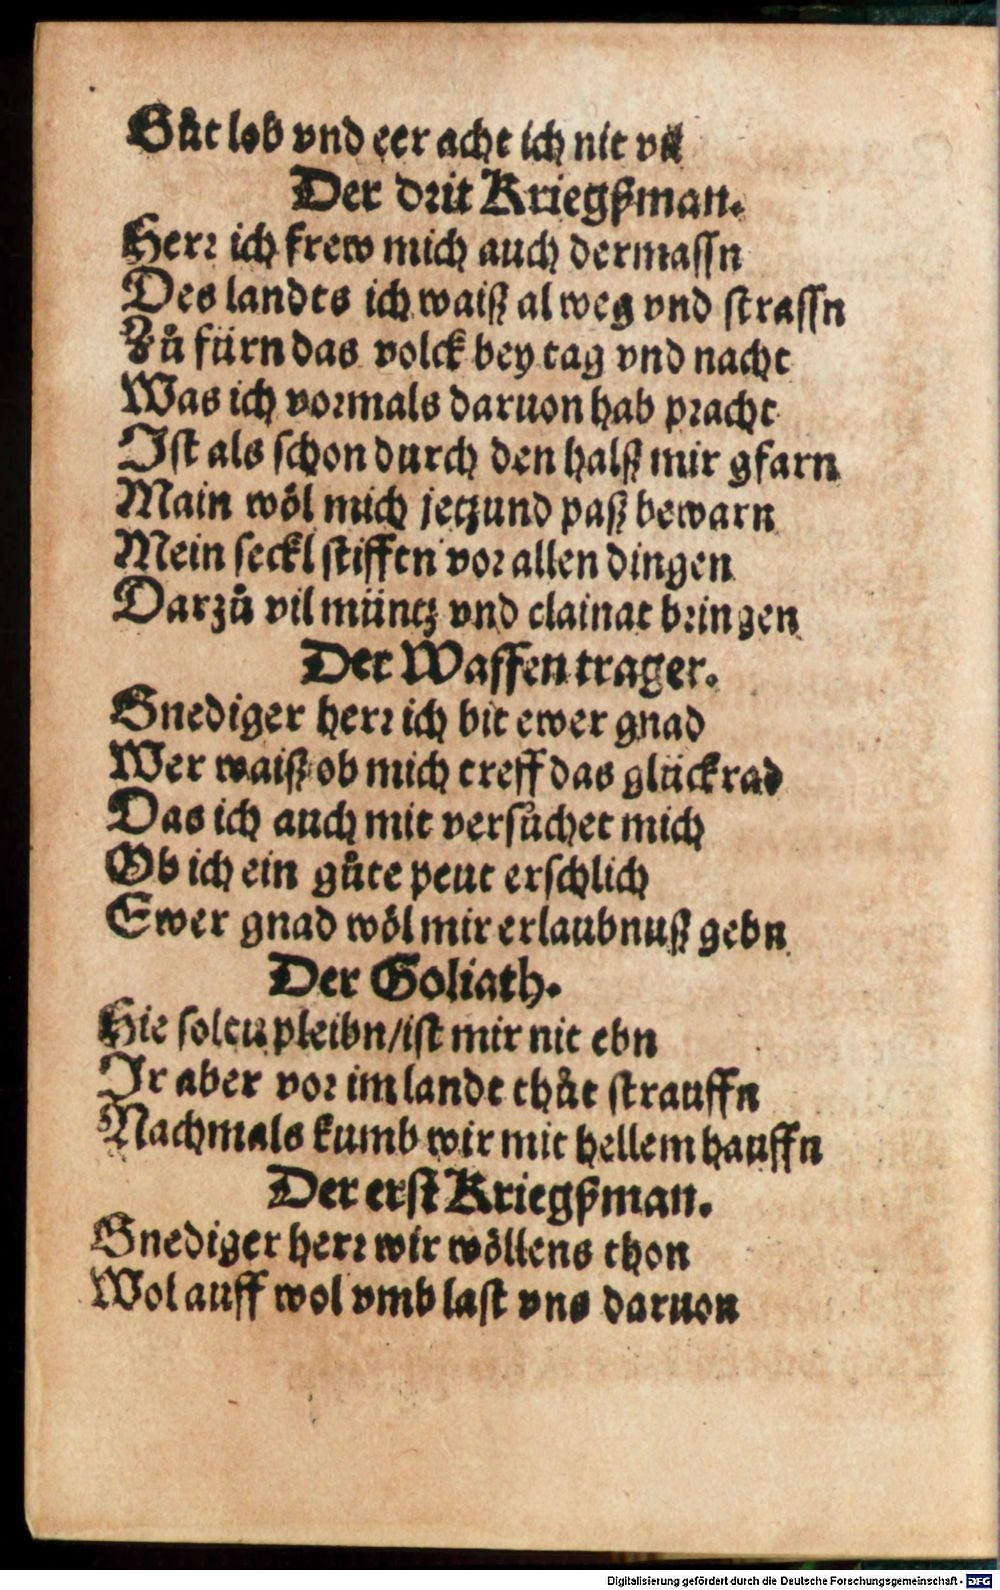 Gůt lob vnd eer acht ich nit vil
Der drit Kriegßman.
Herr ich frew mich auch dermassn
Des landts ich waiß al weg vnd strassn
Zů fürn das volck bey tag vnd nacht
Was ich vormals daruon hab pracht
Ist als schon durch den halß mir gfarn
Main wöl mich jetzund paß bewarn
Mein seckl stifften vor allen dingen
Darzů vil müntz vnd clainat bringen
Der Waffentrager.
Gnediger herr ich bit ewer gnad
Wer waiß ob mich treff das glückrad
Das ich auch mit versůchet mich
Ob ich ein gůte peut erschlich
Ewer gnad wöl mir erlaubnuß gebn
Der Goliath.
Hie soltu pleibn/ist mir nit ebn
Ir aber vor im landt thůt strauffn
Nachmals kumb wir mit hellem hauffn
Der erst Kriegßman.
Gnediger herr wir wöllens thon
Wol auff wol vmb last vns daruon
Digitalisierung gefördert durch die Deutsche Forschungsgemeinschaft - DFG